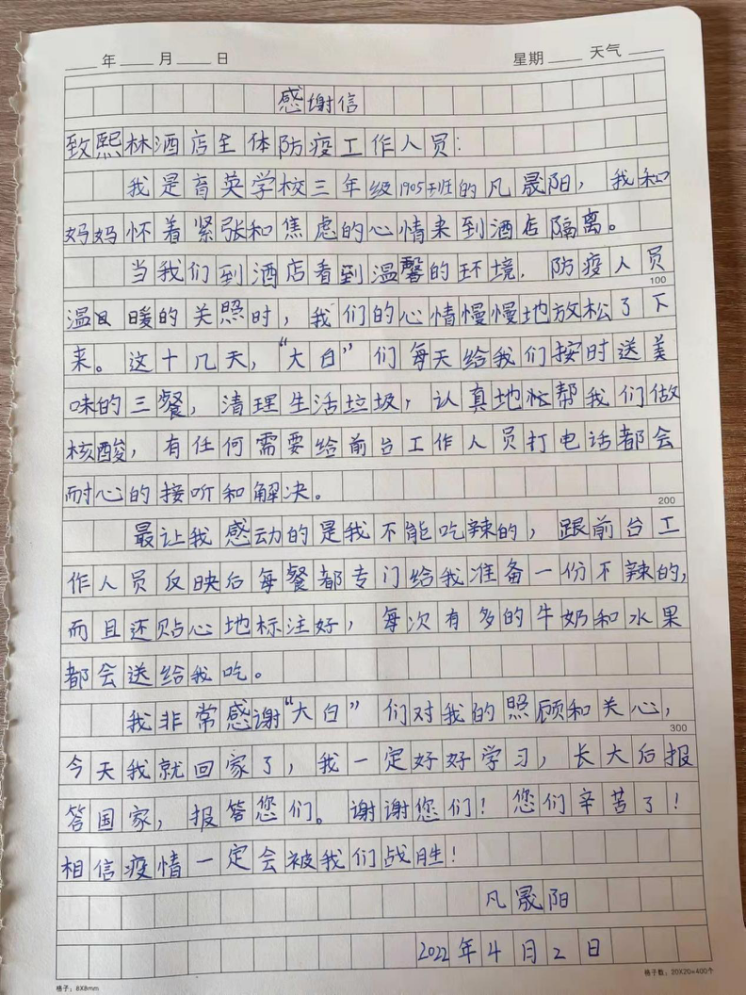 年 月 日 星期 天气
感谢信
致熙林酒店全体防疫工作人员：
我是育英学校三年级1905班的凡晟阳，我和
妈妈怀着紧张和焦虑的心情来到酒店隔离。
当我们到酒店看到温馨的环境，防疫人员
100
温暖的关照时，我们的心情慢慢地放松了下
来。这十几天，“大白”们每天给我们按时送美
味的三餐，清理生活垃圾，认真地帮我们做
核酸，有任何需要给前台工作人员打电话都会
耐心的接听和解决。
200
最让我感动的是我不能吃辣的，跟前台工
作人员反映后每餐都专门给我准备一份不辣的，
而且还贴心地标注好，每次有多的牛奶和水果
都会送给我吃。
我非常感谢“大白”们对我的照顾和关心，
300
今天我就回家了，我一定好好学习，长大后报
答国家，报答您们。谢谢您们！您们辛苦了！
相信疫情一定会被我们战胜！
凡晟阳
2022年4月2日
格子：8X8mm 格子数：20X20=400个